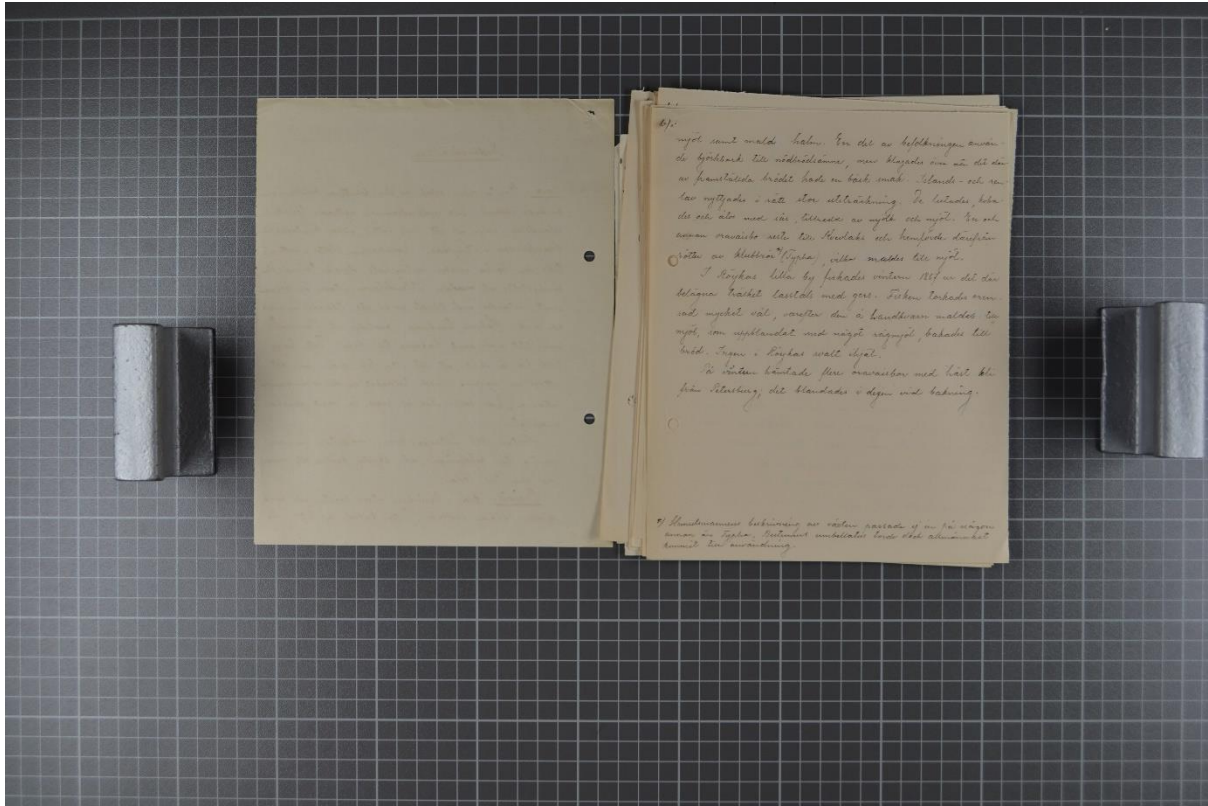 mjöl samt mald halm. En del av befolkningen använ-
de björkbark till nödbrödsämne, men klagades över att det där-
av framställda brödet hade en besk smak. Islands- och ren-
lav nyttjades i rätt stor utsträckning. De lutades, koka-
des och åtos med sås, tillredd av mjölk och mjöl. En och
annan oravaisbo reste till och hemförde därifrån
rötter av klubbros *) (Typha), vilka maldes till mjöl.
I Röykas lilla by fiskades vintern 1867 ur det där
belägna träsket lasstals med gers. Fisken torkades
mycket väl, varefter den å handkvarn maldes till
mjöl, som uppblandat med något rågmjöl, bakades till
bröd. Ingen i Röykas svalt ihjäl.
På vintern hämtade flere oravaisbor med häst kli
från Petersburg, det blandades i degen vid bakning.
*) beskrivning av växten passade ej in på någon
annan än Typha. Butomus umbellatus torde dock allmännast
kommit till användning.